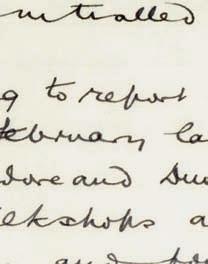 ntralled
g to report
February la
dore and Du
lkshops a
and